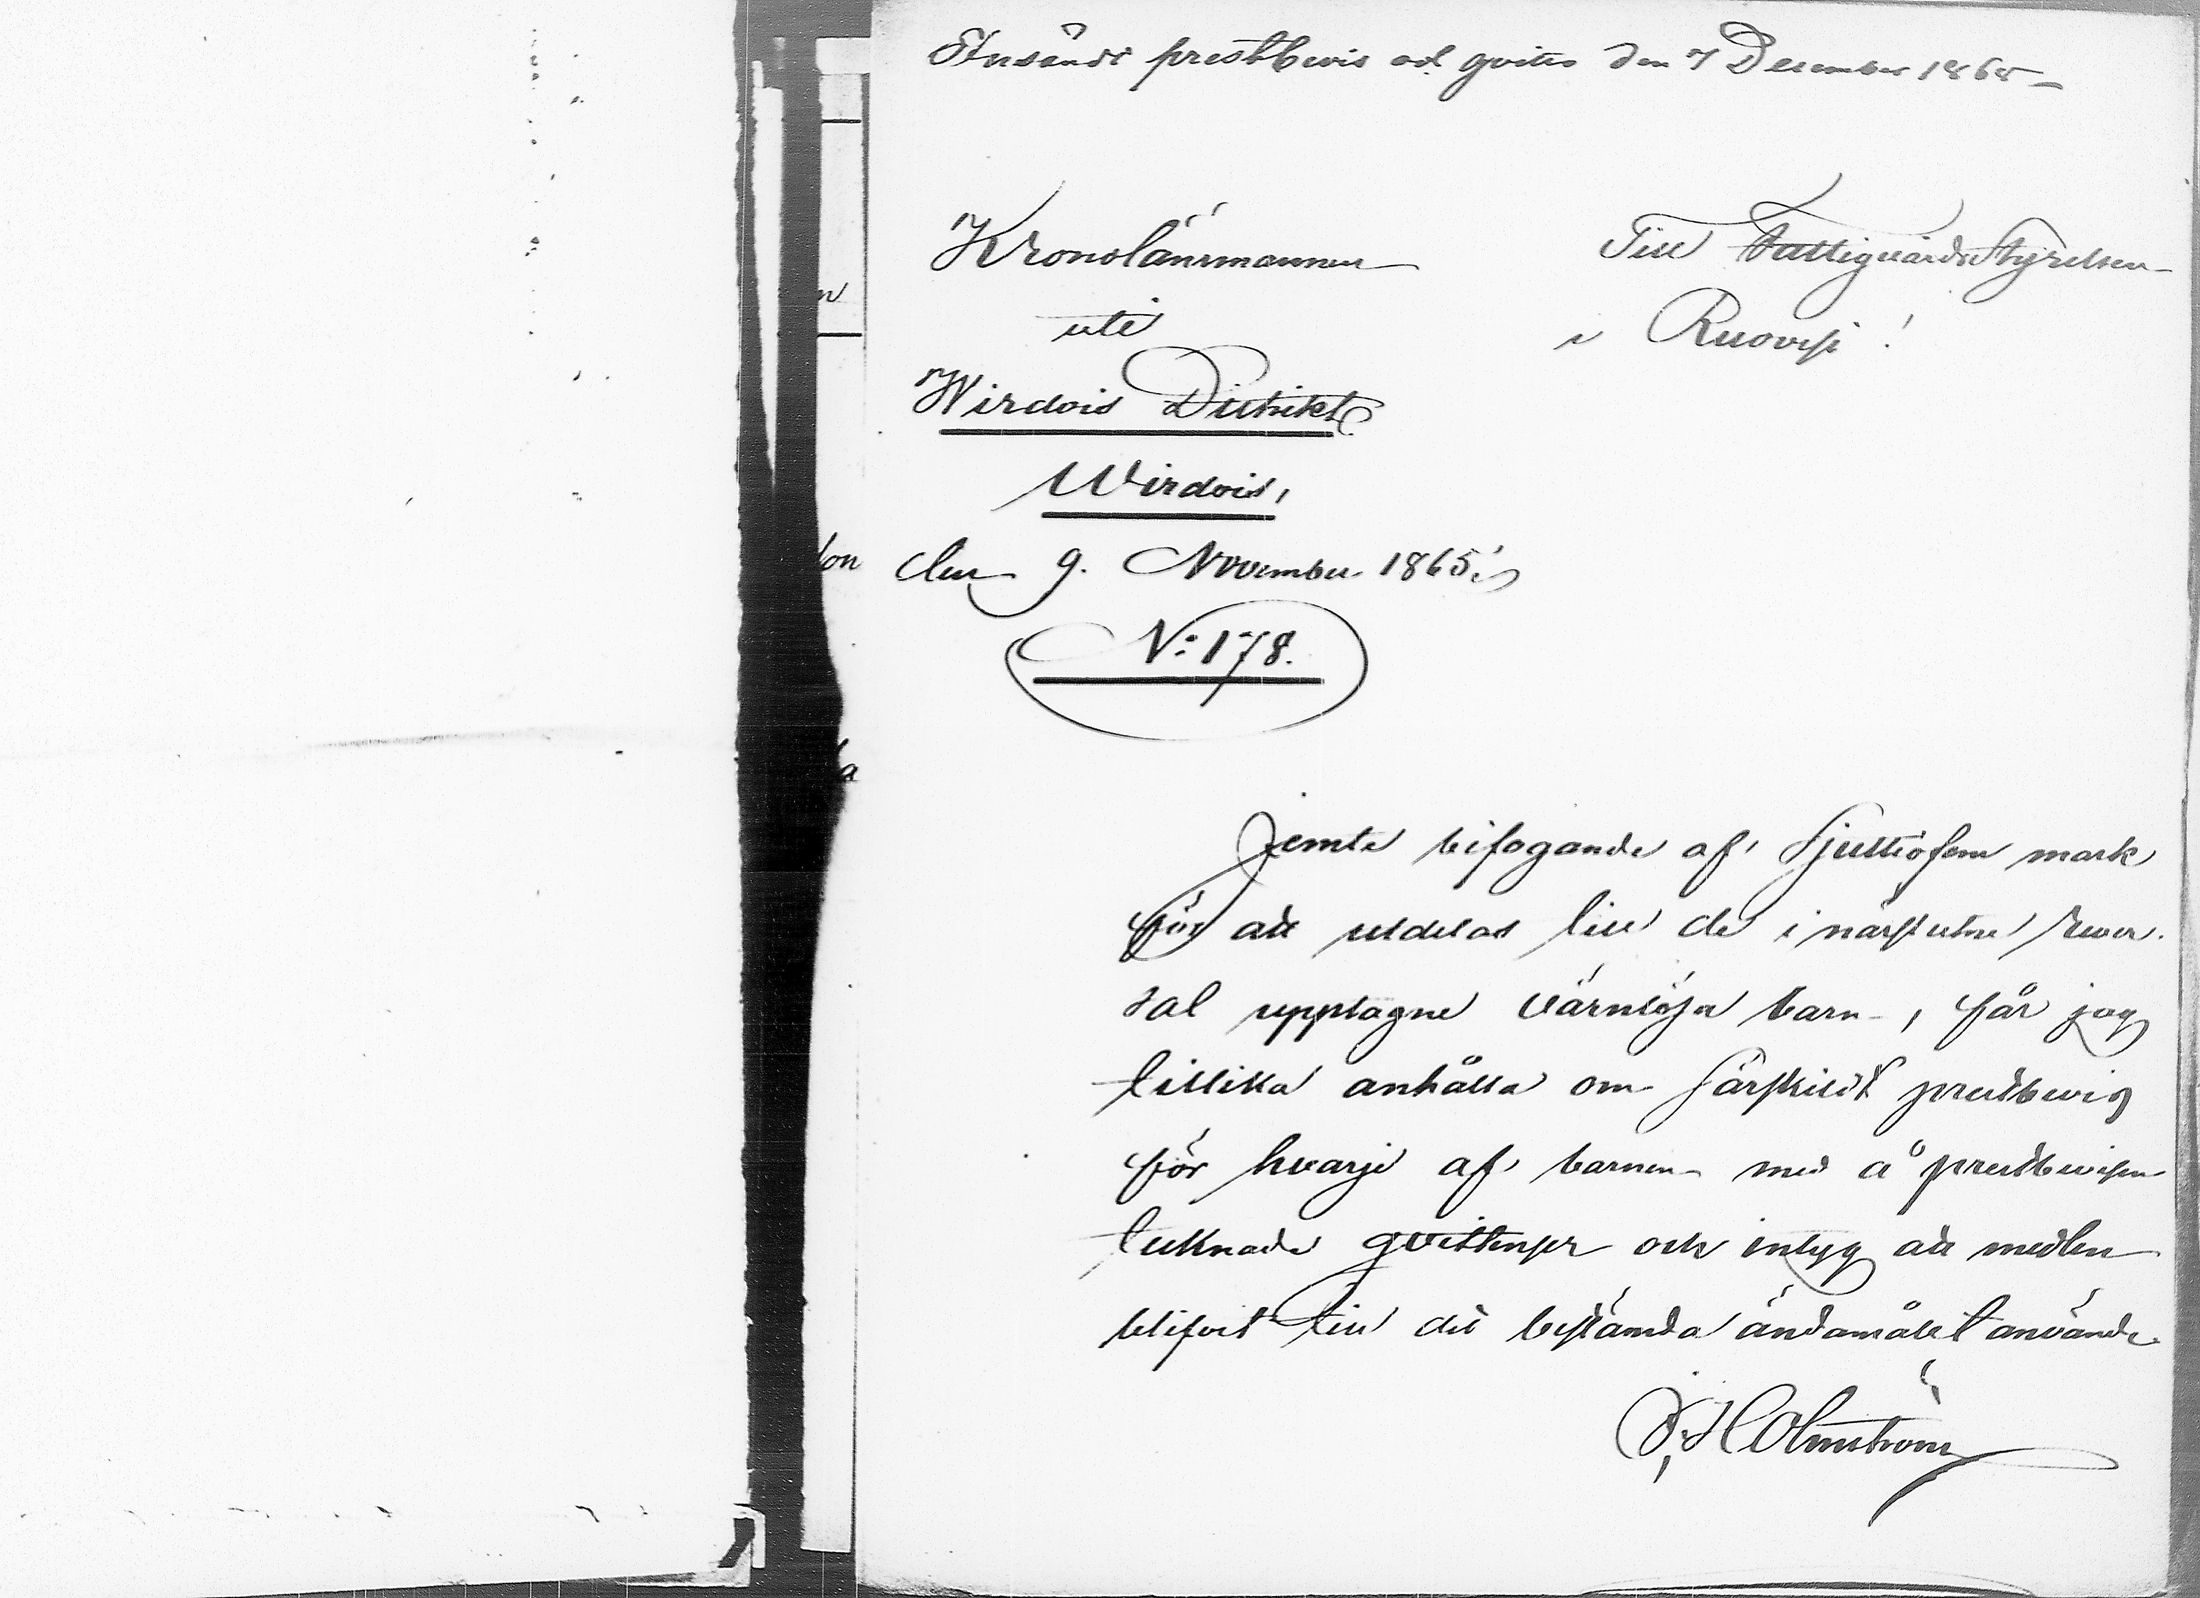 prestbevis och qvitto den 7 December 1865
Kronolänsmannen
uti
Wirdois Distrikt
Wirdois,
den 9. November 1865.
N: 178.
Till FattigvårdsStyrelsen
i Ruovesi!
Jemte bifogande af Sjuttiofem mark
för att utdelas till de i närslutne rever-
sal upptagne värnlösa barn, får jag
tillika anhålla om särskildt prestbevis
för hvarje af barnen med å prestbevisen
tecknade qvittenser och intyg att medlen
blifvit till det bestämda ändamålet använde.
Holmström
n
on
a